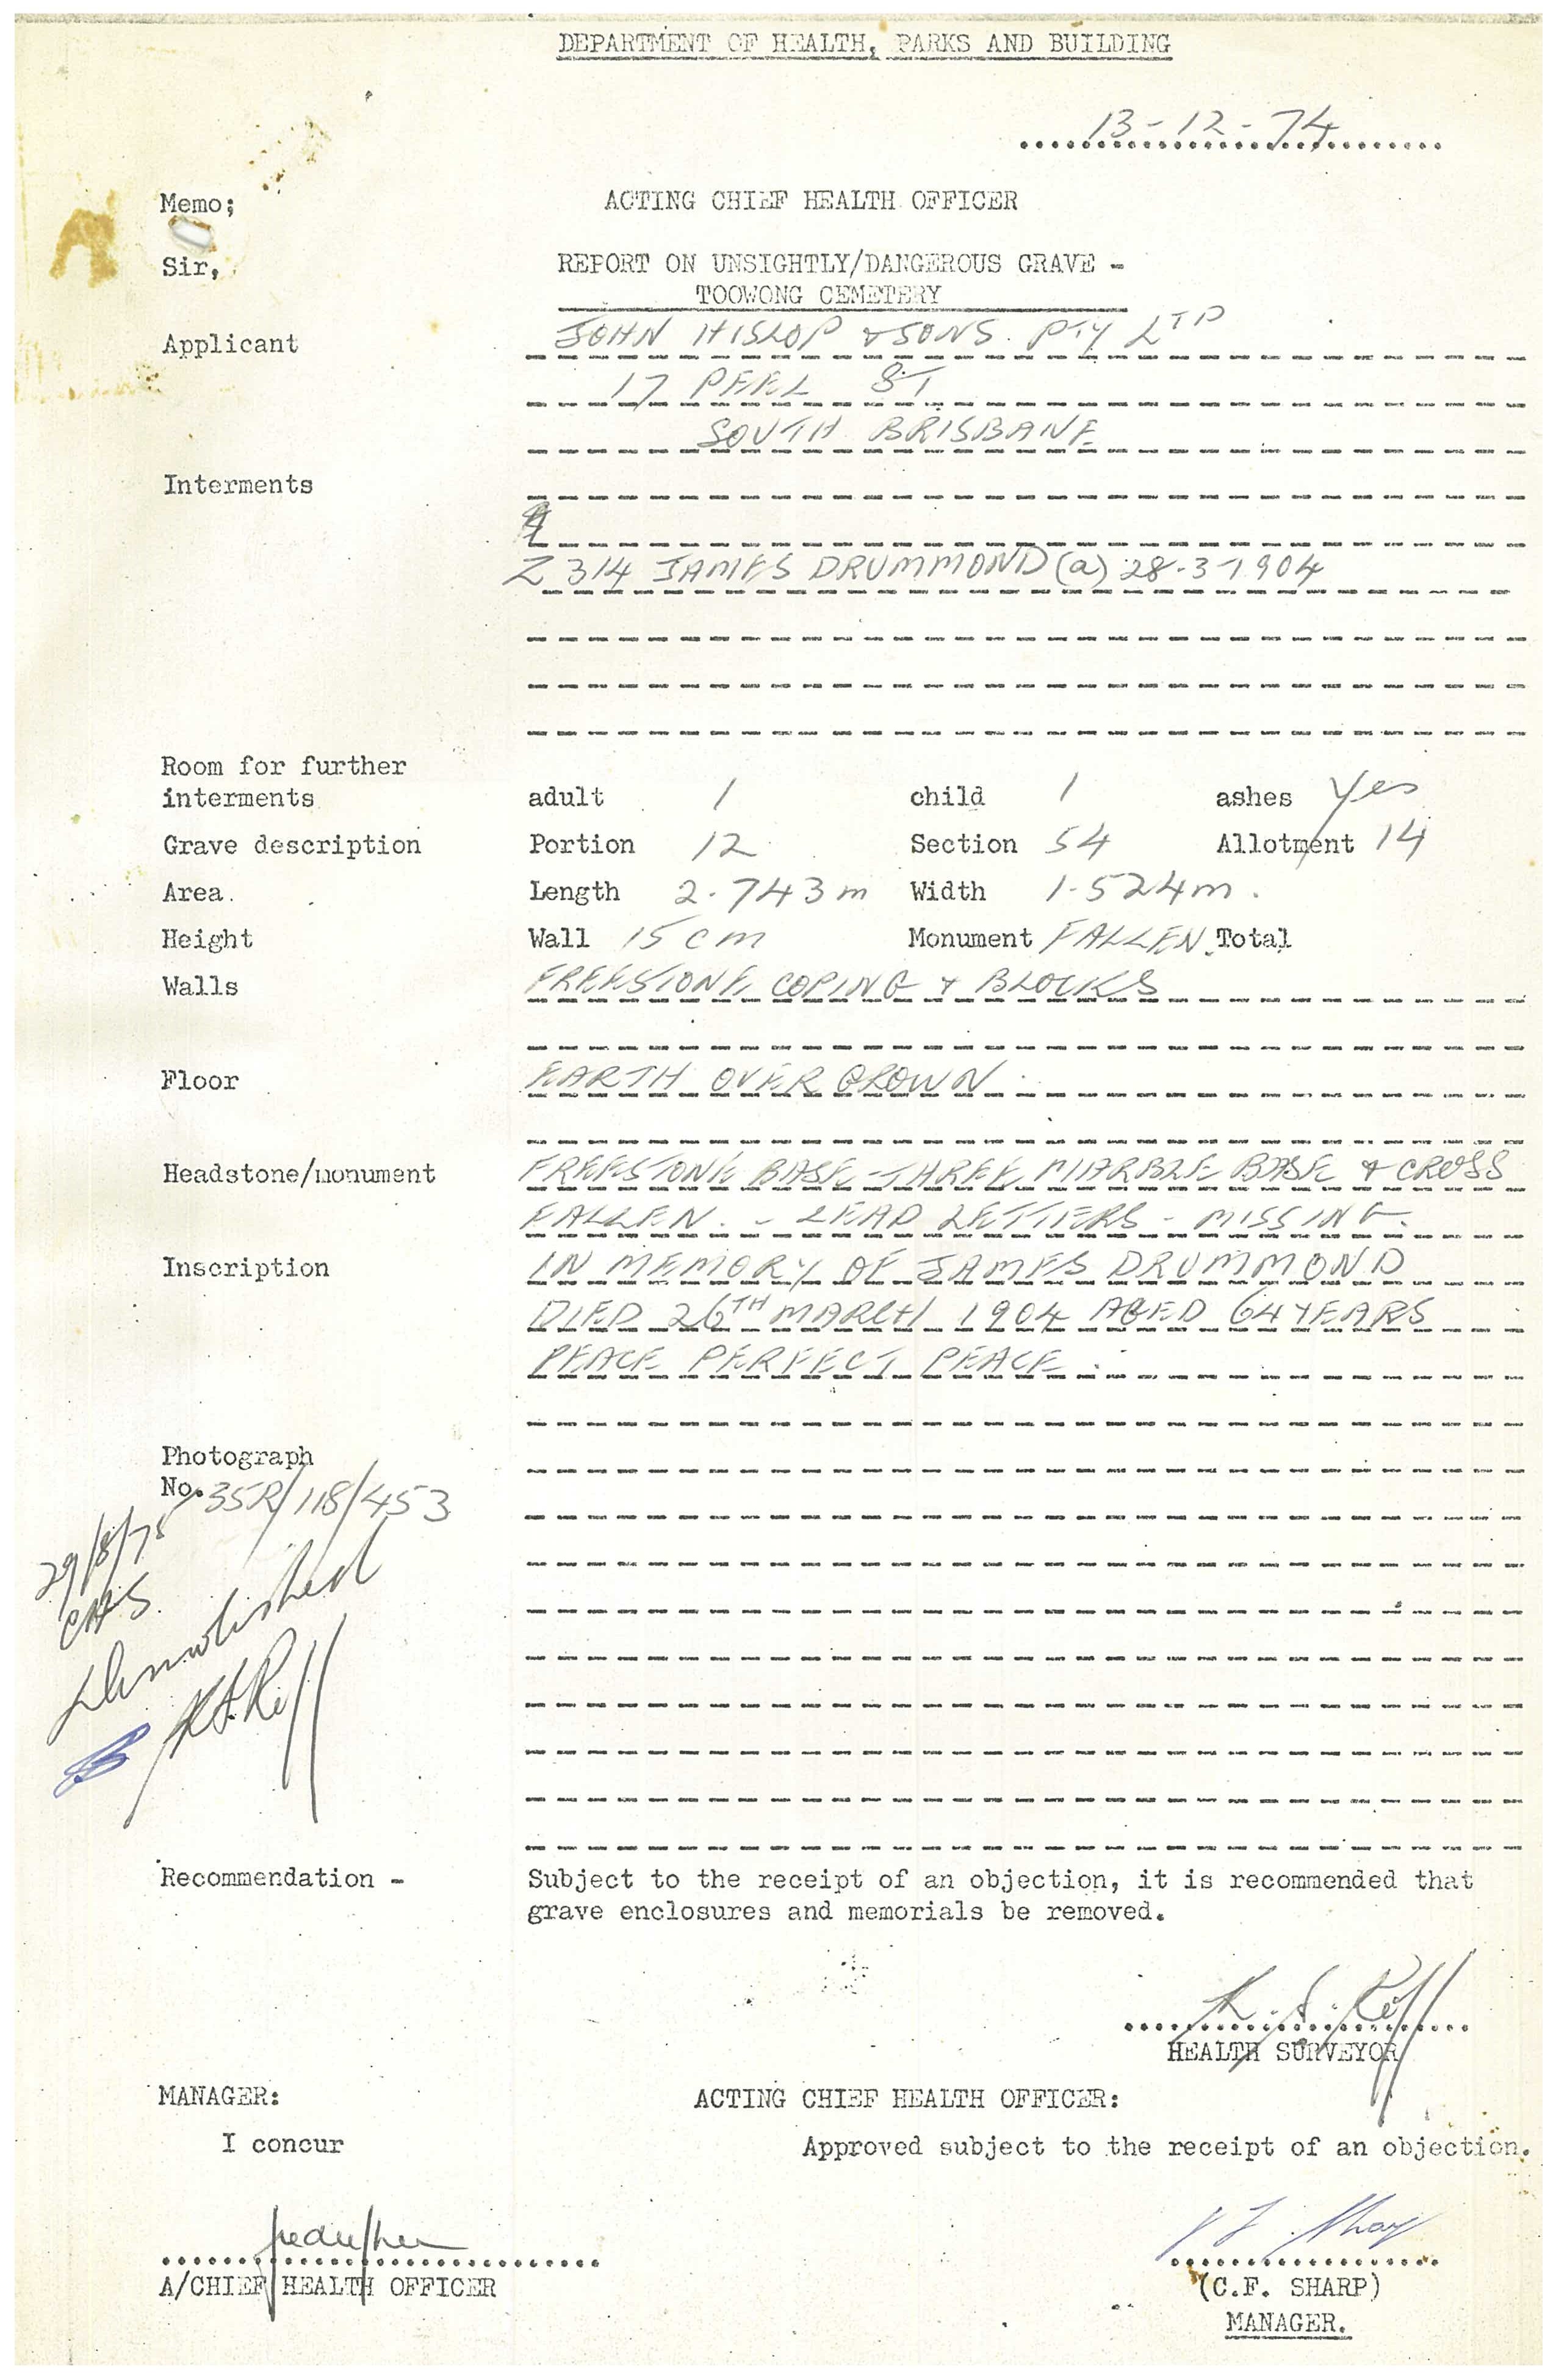 DEPARTMENT OF HEALTH, PARKS AND BUILDING
13-12-74
Memo; ACTING CHIEF HEALTH OFFICER
Sir, REPORT ON UNSIGHTLY/DANGEROUS GRAVE -
TOOWONG CEMETERY
Applicant JOHN HISLOP & SONS. PTY LTD
17 PEEL ST
SOUTH BRISBANE
Interments
Z 314 JAMES DRUMMOND (a) 28-3-1904
Room for further
interments adult 1 child 1 ashes Yes
Grave description Portion 12 Section 54 Allotment 14
Area. Length 2.743m Width 1.524m.
Height Wall 15cm Monument FALLEN. Total
Walls FREESTONE COPING & BLOCKS
Floor EARTH OVERGROWN.
Headstone/monument FREESTONE BASE - THREE MARBLE BASE & CROSS
FALLEN. - LEAD LETTERS - MISSING.
Inscription IN MEMORY OF JAMES DRUMMOND
DIED 26TH MARCH 1904 AGED 64 YEARS
PEACE PERFECT PEACE.
Photograph
No. 35R/118/453
29/8/75
CHS.
Demolished
Recommendation - Subject to the receipt of an objection, it is recommended that
grave enclosures and memorials be removed.
HEALTH SURVEYOR
MANAGER: ACTING CHIEF HEALTH OFFICER:
I concur Approved subject to the receipt of an objection.
A/CHIEF HEALTH OFFICER (C.F. SHARP)
MANAGER.